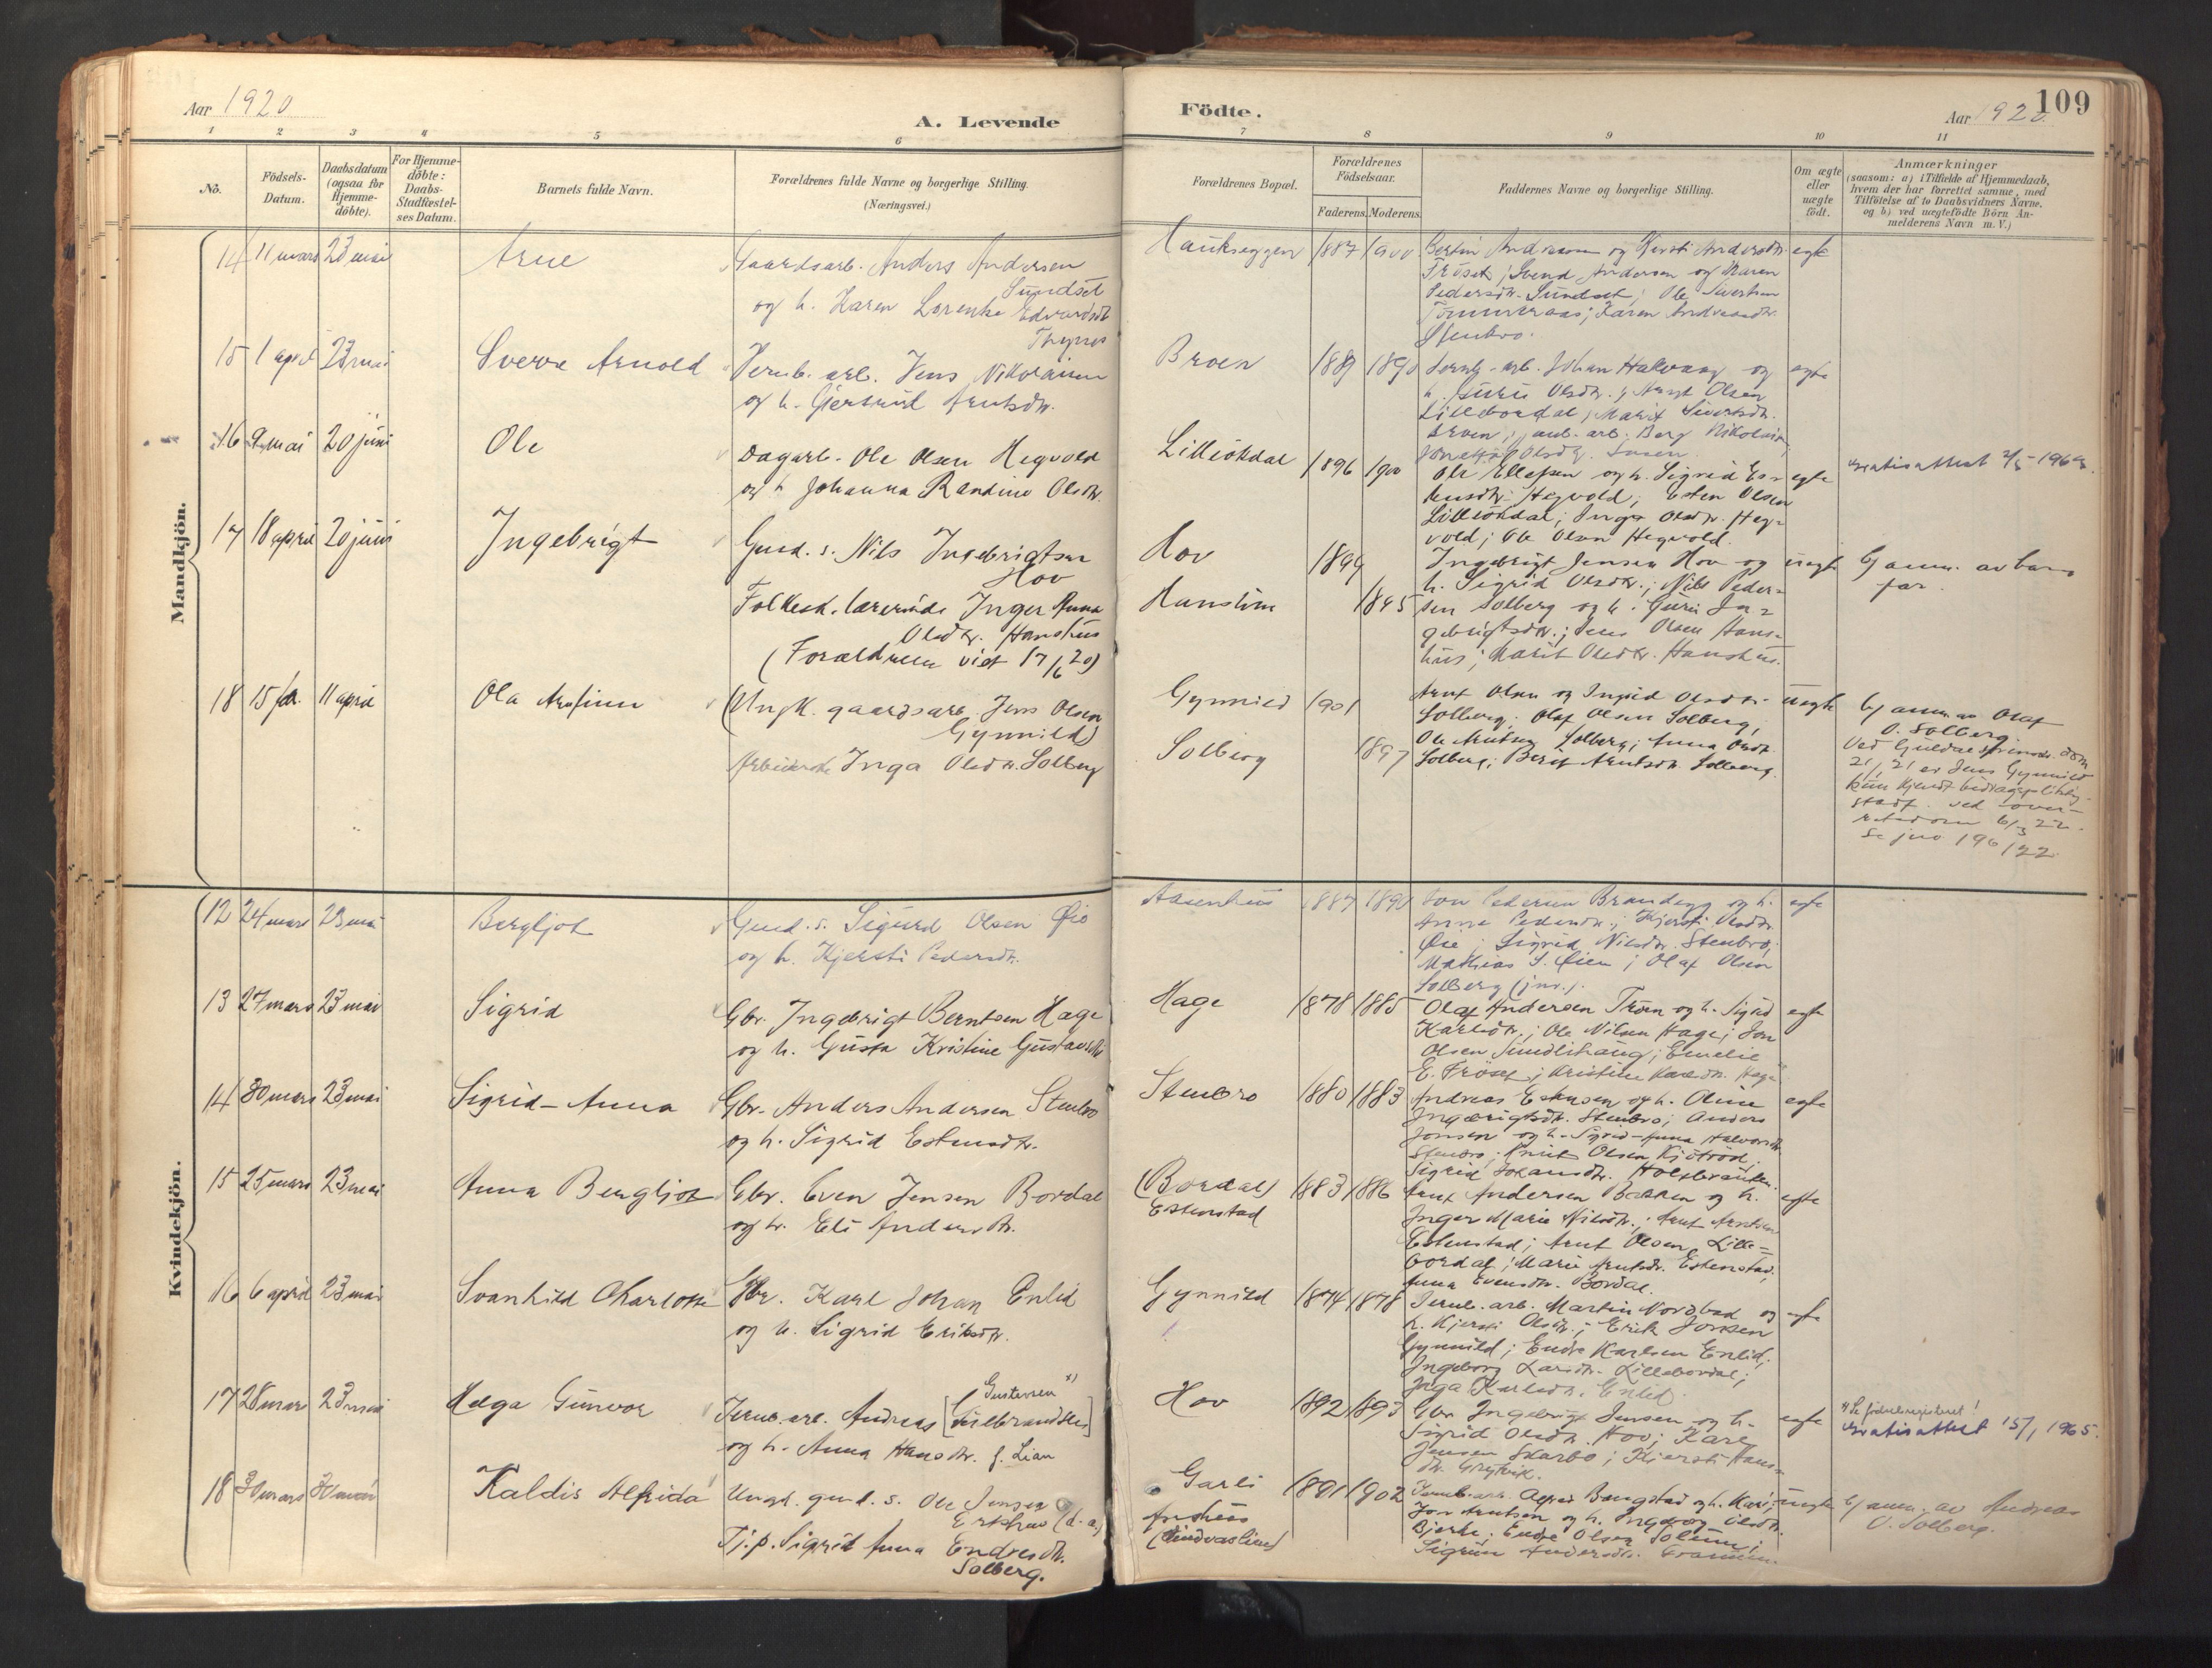 Aar 1920
A. Levende
Födte.
Aar 1920
109
1 2 3 4 5 6 7 8 9 10 11
No.
Födsels-
Datum.
Daabsdatum
(ogsaa for
Hjemme-
döbte).
For Hjemme-
döbte:
Daabs-
Stadfæstel-
ses Datum.
Barnets fulde Navn.
Forældrenes fulde Navne og borgerlige Stilling.
(Næringsvei.)
Forældrenes Bopæl.
Forældrenes
Födselsaar.
Faderens. Moderens.
Faddernes Navne og borgerlige Stilling.
Om ægte
eller
uægte
födt.
Anmærkninger
(saasom: a) i Tilfælde af Hjemmedaab,
hvem der har forrettet samme, med
Tilföielse af to Daabsvidners Navne,
og b) ved uægtefödte Börn An-
melderens Navn m. V.)
Mandkjön.
14 11 mars 23 mai Arne
Gaardsarb. Anders Andersen
Sundset
og h. Karen Lorentse Edvardsdt.
Haukseggen 1887 1900
Bertin Andersen og Kirsti Andersdtr.
Fröset; Svend Andersen og Maren
Pedersdtr. Sundset; Ole Sivertsen
Tömmeraas; Karen Andreasdtr.
Stenbro.
egte
15 1 april 23 mai Sverre Arnold
Jernb. arb. Jens Nikolaisen
og h. Gjertrud Arntsdtr.
Broen 1889 1890
Jernb. arb. Johan Halvaag og
h. Guru Olsdtr.; Arnt Olsen
Lillebordal; Marit Sivertsdtr.
egte
16 9 mai 20 juni Ole
Dagarb. Ole Olsen Hegvold
og h. Johanna Randine Olsdtr.
Lilleökdal 1896 1900
Ole Ellefsen og h. Sigrid Es-
tensdtr. Hegvold; Esten Olsen
Lilleökdal; Inga Olsdtr. Heg-
vold; Ole Olsen Hegvold.
egte
Gratisattest 2/5-1969.
17 18 april 20 juni Ingebrigt
Gaard. s. Nils Ingebrigtsen
Hov
Folkesk. lærerinde Inger Anna
Olsdtr. Hanshus
(Forældrene viet 17/6 20)
Hov 1899
Hanshus 1895
Ingebrigt Jensen Hov og
h. Sigrid Olsdtr.; Nils Peder-
sen Solberg og h. Guru In-
gebrigtsdtr.; Jens Olsen Hans-
hus; Marit Olsdtr. Hanshus.
uegte
Gj anm. av barnets
far.
18 15 feb. 11 april Ola Arnfinn
(Ungk. gaardsarb. Jens Olsen
Gynnild)
Arbeiderske Inga Olsdtr. Solberg
Gynnild 1901
Solberg 1897
Arnt Olsen og Ingrid Olsdtr.
Solberg; Olaf Olsen Solberg;
Ole Arntsen Solberg; Anna Olsdtr.
Solberg; Berit Arntsdtr. Solberg.
uegte
Gj anm. av Olaf
O. Solberg.
Kvindekjön.
12 24 mars 23 mai Bergljot
Gaard. s. Sigurd Olsen Öie
og h. Kjersti Pedersdtr.
Aasenhus 1887 1890
Jon Pedersen Brandegg og h.
Anne Pedersdtr.; Kjersti Olsdtr.
Öie; Sigrid Nilsdtr. Stenbro;
Mathias S. Öien; Olaf Olsen
Solberg (jnr.).
egte
13 27 mars 23 mai Sigrid
Gbr. Ingebrigt Berntsen Hage
og h. Gusta Kristine Gustavsdtr.
Hage 1878 1885
Olaf Andersen Tröen og h. Sigrid
Karlsdtr.; Ole Nilsen Hage; Jon
Olsen Sundlihaug; Emelie
E. Fröset; Kristine Karlsdtr. Hage
egte
14 30 mars 23 mai Sigrid-Anna
Gbr. Anders Andersen Stenbro
og h. Sigrid Estensdtr.
Stenbro 1880 1883
Andreas Estensen og h. Oline
Ingebrigtsdtr. Stenbro; Anders
Jonsen og h. Sigrid-Anna Halvorsdtr.
egte
15 25 mars 23 mai Anna Bergljot
Gbr. Even Jensen Bordal
og h. Eli Andersdtr.
(Bordal)
Estenstad
1883 1886
Arnt Andersen Bakken og h.
Inger Marie Nilsdtr.; Arnt Arntsen
Estenstad; Arnt Olsen Lille-
bordal; Marie Arntsdtr. Estenstad;
Anna Evensdtr. Bordal.
egte
16 6 april 23 mai Svanhild Charlotte
Gbr. Karl Johan Enlid
og h. Sigrid Eriksdtr.
Gynnild 1874 1878
Jernb. arb. Martin Nordbad og
h. Kjersti Olsdtr.; Erik Jonsen
Gynnild; Endre Karlsen Enlid;
Ingeborg Larsdtr. Lillebordal;
Inga Karlsdtr. Enlid.
egte
17 28 mars 23 mai Helga Gunvor
Gustavsen x)
Jernb. arb. Andreas [Gulbrandsen]
og h. Anna Hansdtr. f. Lian
Hov 1892 1893
Gbr. Ingebrigt Jensen og h.
Sigrid Olsdtr. Hov; Karl
Jensen Skarbo; Kjersti Hans-
egte
x) Se födselsregisteret!
Gratisattest 15/1 1965.
18 30 mars 30 mai Kaldis Alfrida
Ungk. gaard. s. Ole Jensen
Tj.p. Sigrid Anna Endresdtr.
Solberg.
Garli 1891 1902
Jon Arntsen og h. Ingeborg Olsdtr.
Bjerke; Endre Olsen Solem;
uegte
Gj anm. av Andreas
O. Solberg.